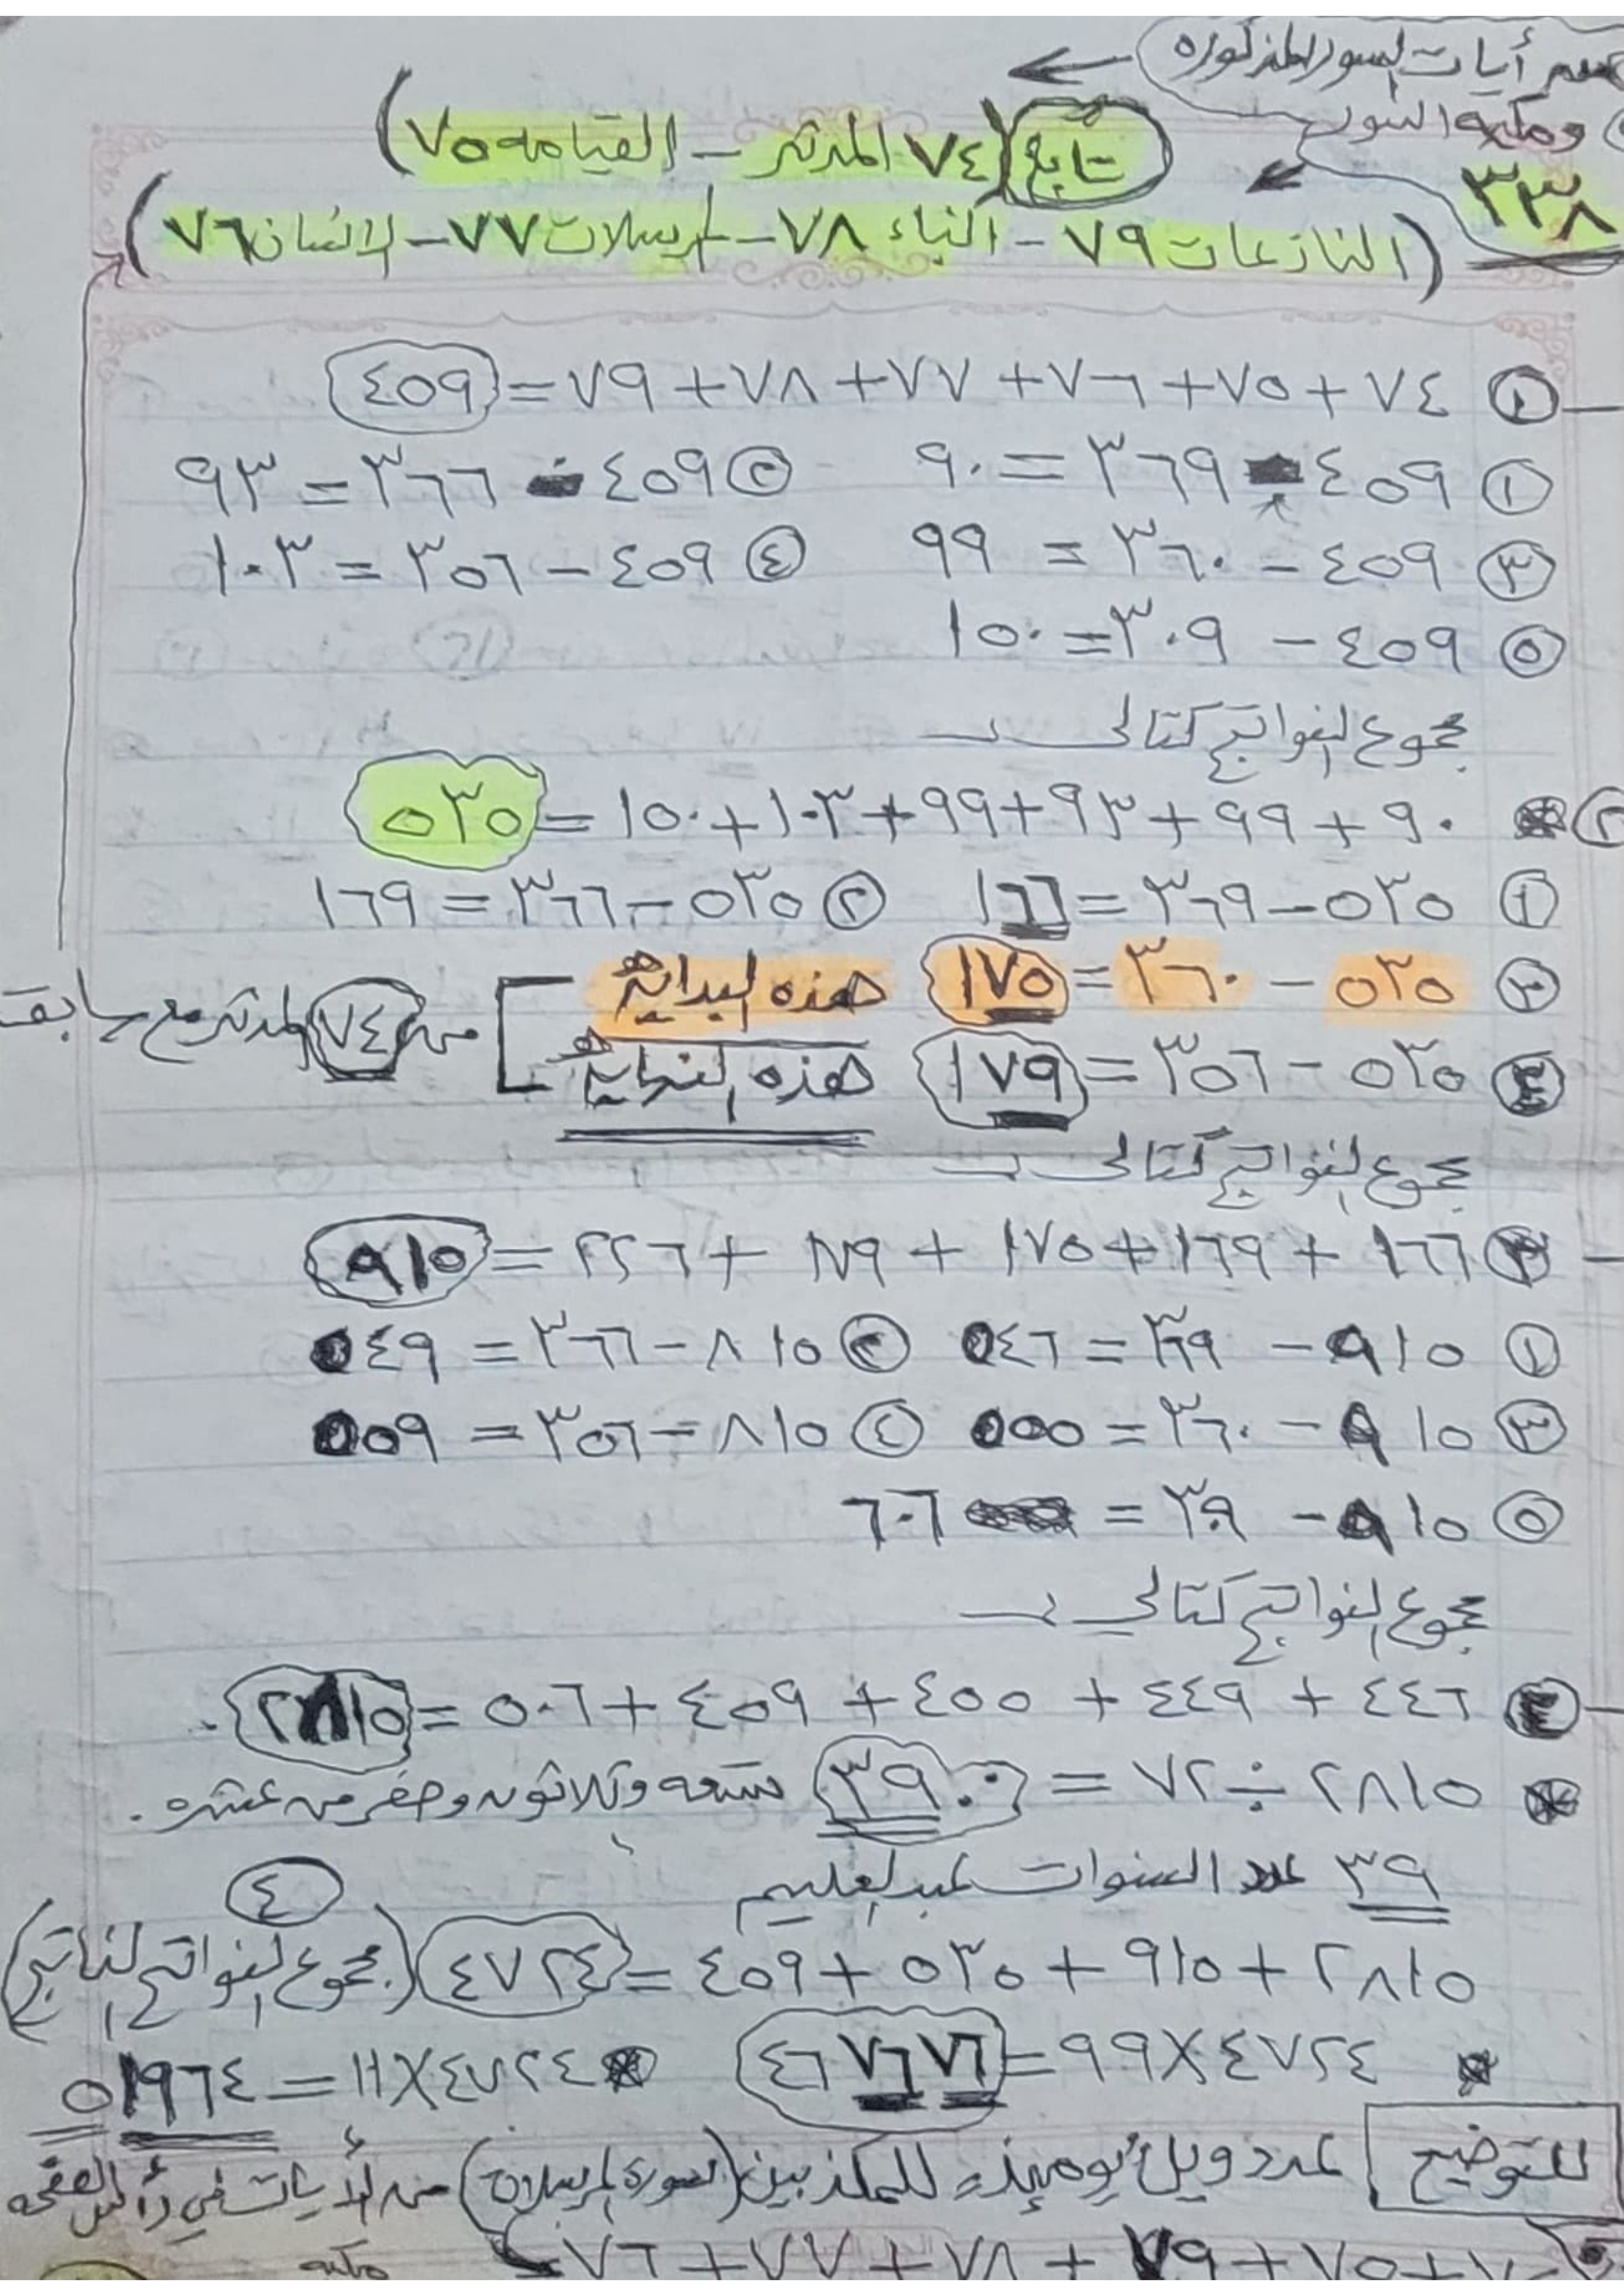 أيات السور المذكوره
ومكيه النور
تابع (٧٤ المدثر – القيامه ٧٥)
٣٣٨
(النازعات ٧٩ – النباء ٧٨ – المرسلات ٧٧ – الانسان ٧٦)
٧٤ + ٧٥ + ٧٦ + ٧٧ + ٧٨ + ٧٩ = ٤٥٩
① ٤٥٩ - ٣٦٩ = ٩٠ ② ٤٥٩ - ٣٦٦ = ٩٣
③ ٤٥٩ – ٣٦٠ = ٩٩ ④ ٤٥٩ – ٣٥٦ = ١٠٣
⑤ ٤٥٩ – ٣٠٩ = ١٥٠
مجموع النواتج كتالى
② ٩٠ + ٩٩ + ٩٣ + ٩٩ + ١٠٣ + ١٥٠ = ٥٣٥
① ٥٣٥ – ٣٦٩ = ١٦٦ ② ٥٣٥ – ٣٦٦ = ١٦٩
③ ٥٣٥ – ٣٦٠ = ١٧٥ هذه البدايه
من ٧٤ المدثر مع سابقه
④ ٥٣٥ – ٣٥٦ = ١٧٩ هذه النهايه
مجموع النواتج كتالى
③ ١٦٦ + ١٦٩ + ١٧٥ + ١٧٩ + ٢٢٦ = ٩١٥
① ٩١٥ – ٣٦٩ = ٥٤٦ ② ٨١٥ – ٣٦٦ = ٥٤٩
③ ٩١٥ – ٣٦٠ = ٥٥٥ ④ ٨١٥ – ٣٥٦ = ٥٥٩
⑤ ٩١٥ – ٣٠٩ = ٦٠٦
مجموع النواتج كتالى
④ ٤٤٦ + ٤٤٩ + ٤٥٥ + ٤٥٩ + ٥٠٦ = ٢٨١٥
٢٨١٥ ÷ ٧٢ = ٣٩.٠ تسعه وثلاثون وصفر من عشره .
٣٩ عدد السنوات عبدالعليم
٤
٢٨١٥ + ٩١٥ + ٥٣٥ + ٤٥٩ = ٤٧٢٤ (مجموع النواتج الناتج)
* ٤٧٢٤ × ٩٩ = ٤٦٧٦٧٦ * ٤٧٢٤ × ١١ = ٥١٩٦٤
للتوضيح عدد ويل يومئذ للمكذبين (سورة المرسلات) من الأيات في رأس الصفحه
٧٥ + ٧٩ + ٧٨ + ٧٧ + ٧٦
مكيه